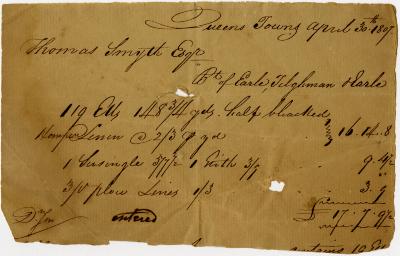 Queens Town April 30th 1807
Thomas Smyth Esqr
Bt of Earle Tilghman & Earle
119 Ells 148 3/4 yds half bleached
Linen @ 2/3 p yd 16.14.8
1 Sursingle 1 9.4½
plow Lines 1/3 3.9
£17.7.9½
entered